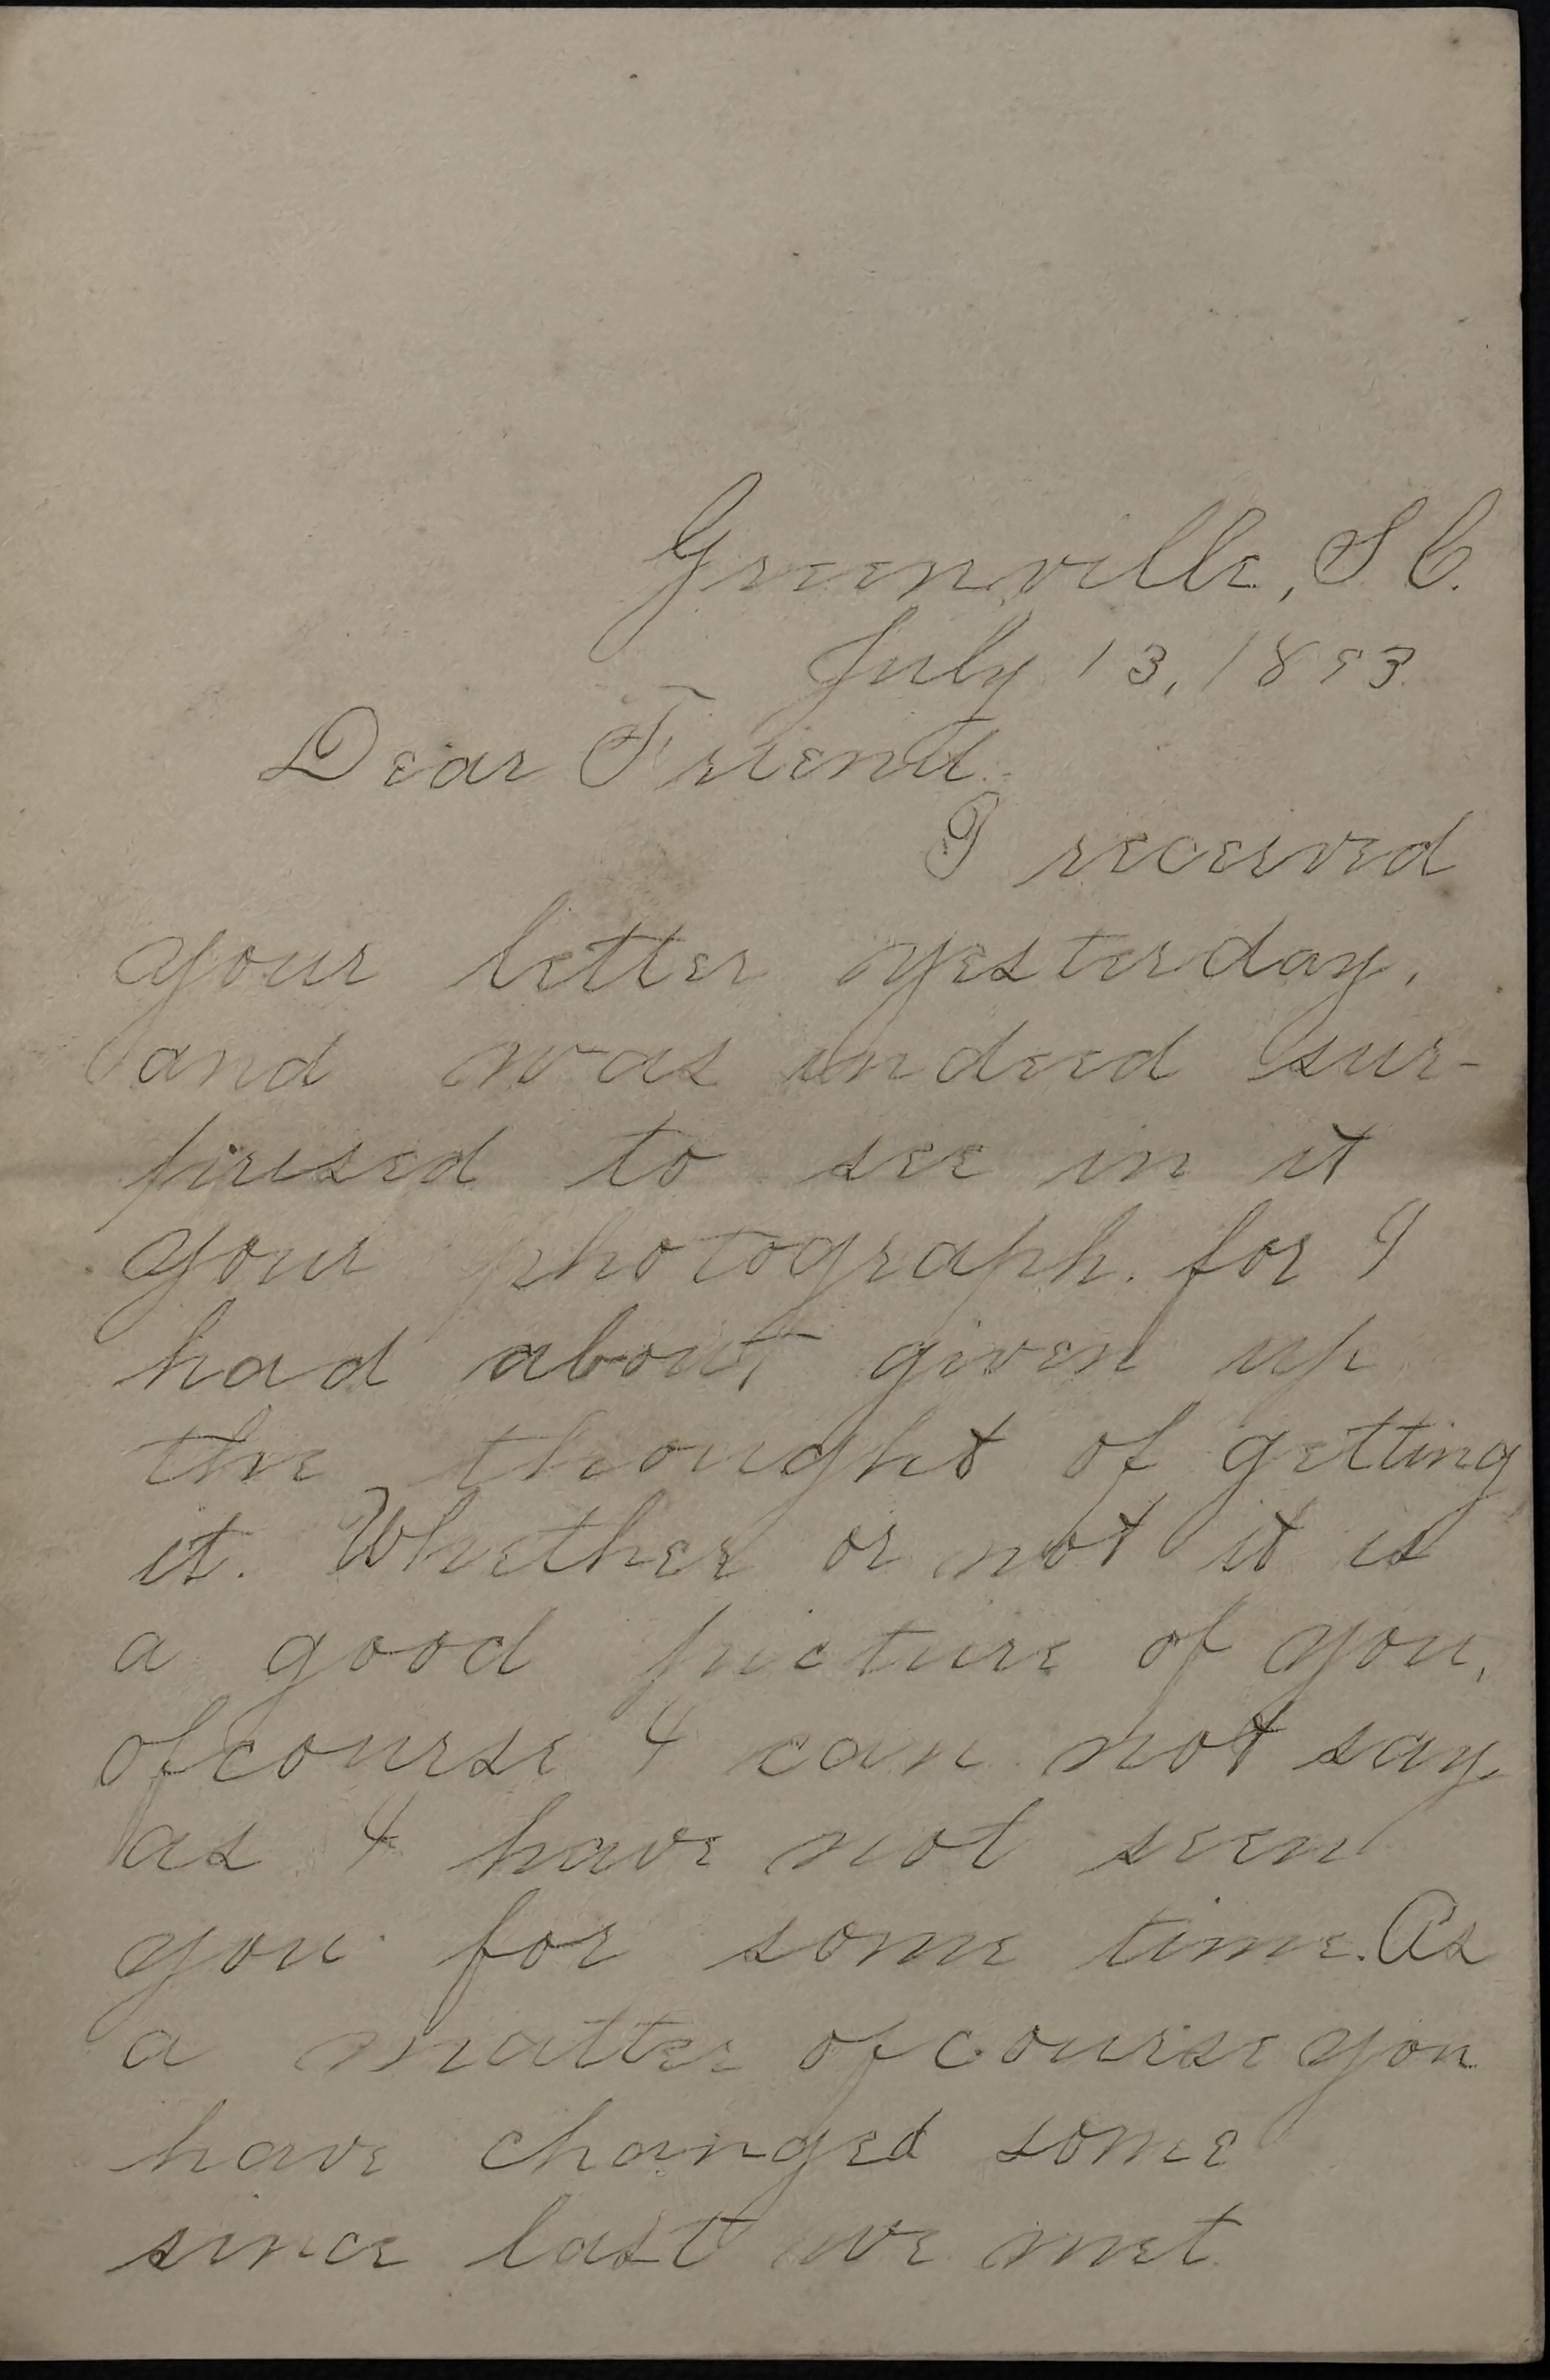 Greenville, S C.
July 13, 1893.
Dear Friend.
I received
your letter yesterday,
and was indeed sur-
prised to see in it
your photograph. for I
had about given up
the thought of getting
it. Whether or not it is
a good picture of you,
ofcourse I can not say,
as I have not seen
you for some time. As
a matter ofcourse you
have changed some
since last we met.